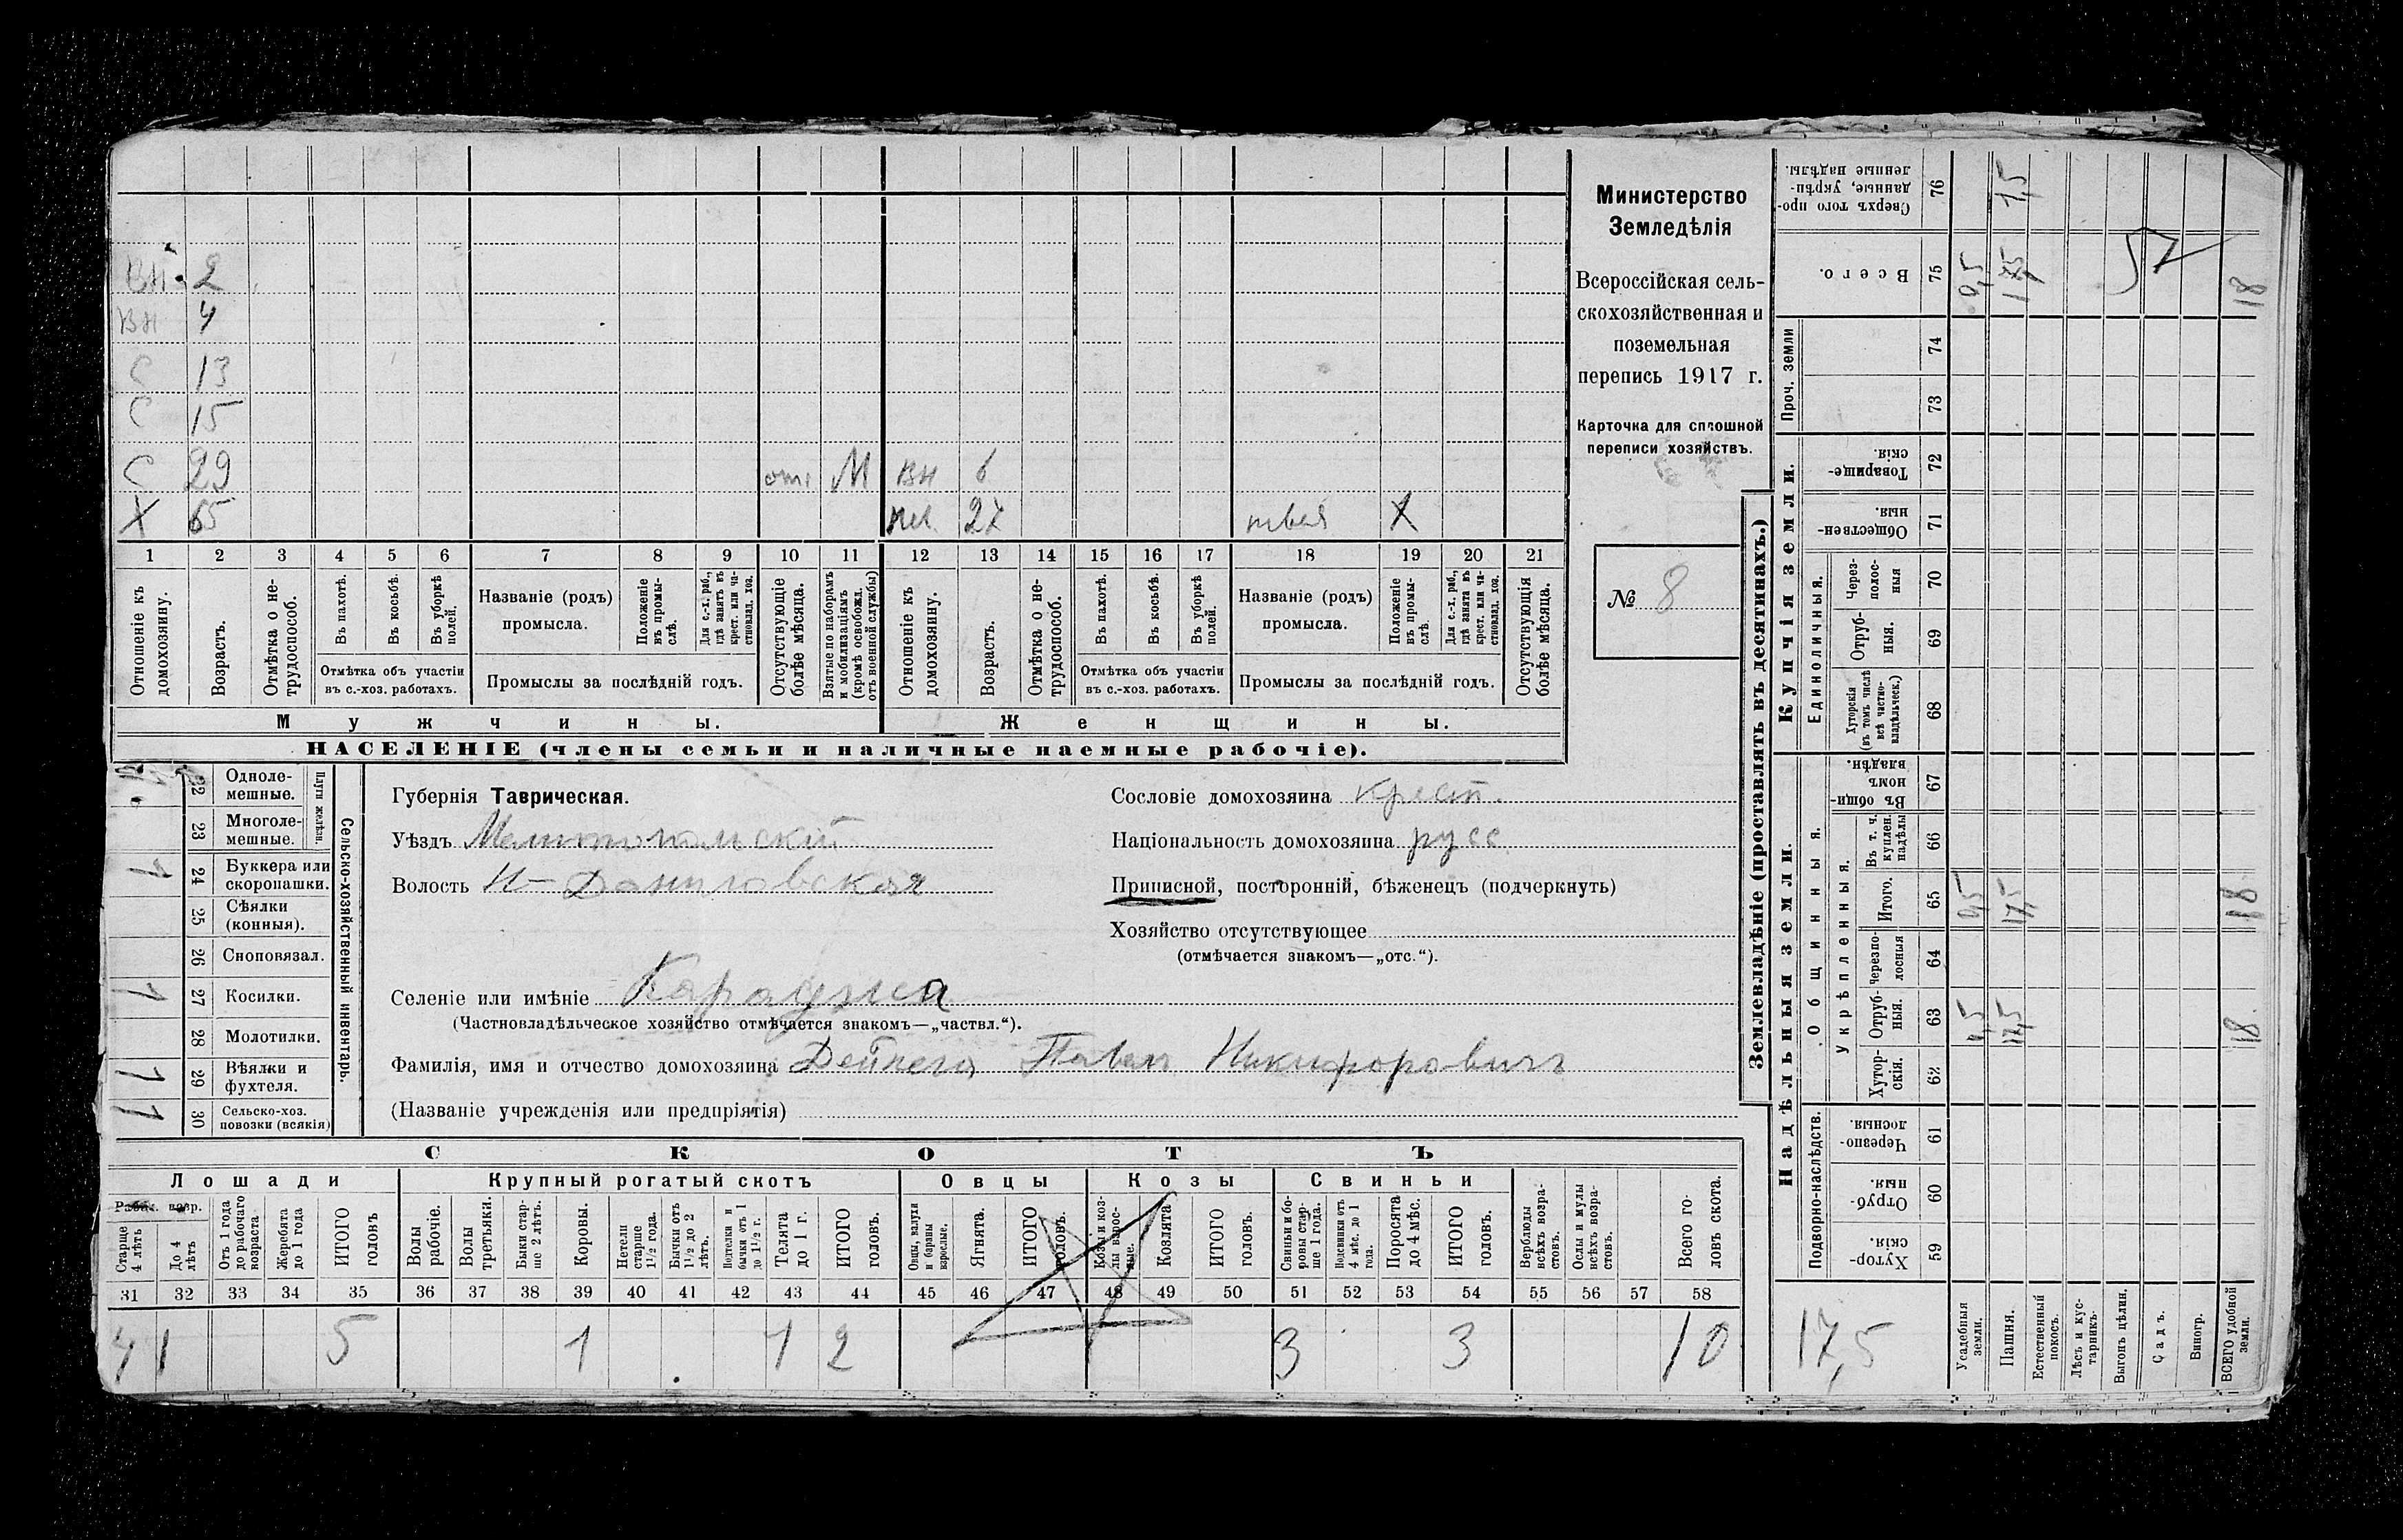 Министерство
Земледѣлія
Всероссійская сель-
скохозяйственная и
поземельная
перепись 1917 г.
Карточка для сплошной
переписи хозяйствъ.
№ 8
вн 2
вн 4
С 13
С 15
С 29 отс М вн 6
Х 65 27 швея Х
1 2 3 4 5 6 7 8 9 10 11 12 13 14 15 16 17 18 19 20 21
Отношеніе къ домохозяину.
Возрастъ.
Отмѣтка о не-трудоспособ.
Въ пахотѣ.
Въ косьбѣ.
Въ уборкѣ полей.
Отмѣтка объ участіи
въ с.-хоз. работахъ.
Названіе (родъ)
промысла.
Положеніе въ промы-слѣ.
Для с.-х. раб., гдѣ занятъ въ крест. или ча-стновлад. хоз.
Промыслы за послѣдній годъ.
Отсутствующіе болѣе мѣсяца.
Взятые по наборамъ и мобилизаціямъ (кромѣ освобожд. отъ военной службы)
Отношеніе къ домохозяину.
Возрастъ.
Отмѣтка о не-трудоспособ.
Въ пахотѣ.
Въ косьбѣ.
Въ уборкѣ полей.
Отмѣтка объ участіи
въ с.-хоз. работахъ.
Названіе (родъ)
промысла.
Положеніе въ промы-слѣ.
Для с.-х. раб., гдѣ занята въ крест. или ча-стновлад. хоз.
Промыслы за послѣдній годъ.
Отсутствующія болѣе мѣсяца.
Мужчины. Женщины.
НАСЕЛЕНІЕ (члены семьи и наличные наемные рабочіе).
Сельско-хозяйственный инвентарь.
Плуги желѣзн.
22 Одноле-мешные.
23 Многоле-мешные.
1 24 Буккера или скоропашки.
25 Сѣялки (конныя).
26 Сноповязал.
1 27 Косилки.
28 Молотилки.
1 29 Вѣялки и фухтеля.
1 30 Сельско-хоз. повозки (всякія)
Губернія Таврическая.
Уѣздъ Мелитопольскій
Волость Н-Даниловская
Селеніе или имѣніе Караджа
(Частновладѣльческое хозяйство отмѣчается знакомъ—„частвл.“).
Фамилія, имя и отчество домохозяина Дейнега Павелъ Никифоровичъ
(Названіе учрежденія или предпріятія)
Сословіе домохозяина крест.
Національность домохозяина русс
Приписной, посторонній, бѣженецъ (подчеркнуть)
Хозяйство отсутствующее
(отмѣчается знакомъ—„отс.“).
СКОТЪ
Лошади Крупный рогатый скотъ Овцы Козы Свиньи
Рабоч. возр.
Старше 4 лѣтъ
До 4 лѣтъ
Отъ 1 года до рабочаго возраста
Жеребята до 1 года
ИТОГО головъ
Волы рабочіе.
Волы третьяки.
Быки стар-ше 2 лѣтъ.
Коровы.
Нетели старше 1½ года.
Бычки отъ 1½ до 2 лѣтъ.
Подтелки и бычки отъ 1 до 1½ г.
Телята до 1 г.
ИТОГО головъ.
Овцы, валухи и бараны взрослые.
Ягнята.
ИТОГО головъ.
Козы и коз-лы взрос-лые.
Козлята
ИТОГО головъ.
Свиньи и бо-ровы стар-ше 1 года.
Подсвинки отъ 4 мѣс. до 1 года.
Поросята до 4 мѣс.
ИТОГО головъ.
Верблюды всѣхъ возра-стовъ.
Ослы и мулы всѣхъ возра-стовъ.
Всего го-ловъ скота.
31 32 33 34 35 36 37 38 39 40 41 42 43 44 45 46 47 48 49 50 51 52 53 54 55 56 57 58
4 1 5 1 1 2 3 3 10
Землевладѣніе (проставлять въ десятинахъ.)
Купчія земли.
Надѣльныя земли.
Проч. земли
Единоличныя.
Общинныя.
Укрѣпленныя.
Подворно-наслѣдств.
Сверхъ того про-данные, укрѣп-ленные надѣлы. 76 1,5
Всего. 75 0,5 17,5 57 18
74
73
Товарище-скія. 72
Обществен-ныя. 71
Через-полос-ныя 70
Отруб-ныя. 69
Хуторскія (въ томъ числѣ всѣ частно-владѣльческ.) 68
Въ общин-номъ владѣн. 67
Въ т. ч. куплен. надѣлы 66
Итого. 65 0,5 17,5 18
Черезпо-лосныя 64
Отруб-ныя. 63 0,5 17,5 18
Хутор-скія. 62
Черезпо-лосныя. 61
Отруб-ныя. 60
Хутор-скія. 59
17,5
Усадебныя земли.
Пашня.
Естественный покосъ.
Лѣсъ и кус-тарникъ.
Выгонъ цѣлин.
Садъ.
Виногр.
ВСЕГО удобной земли.